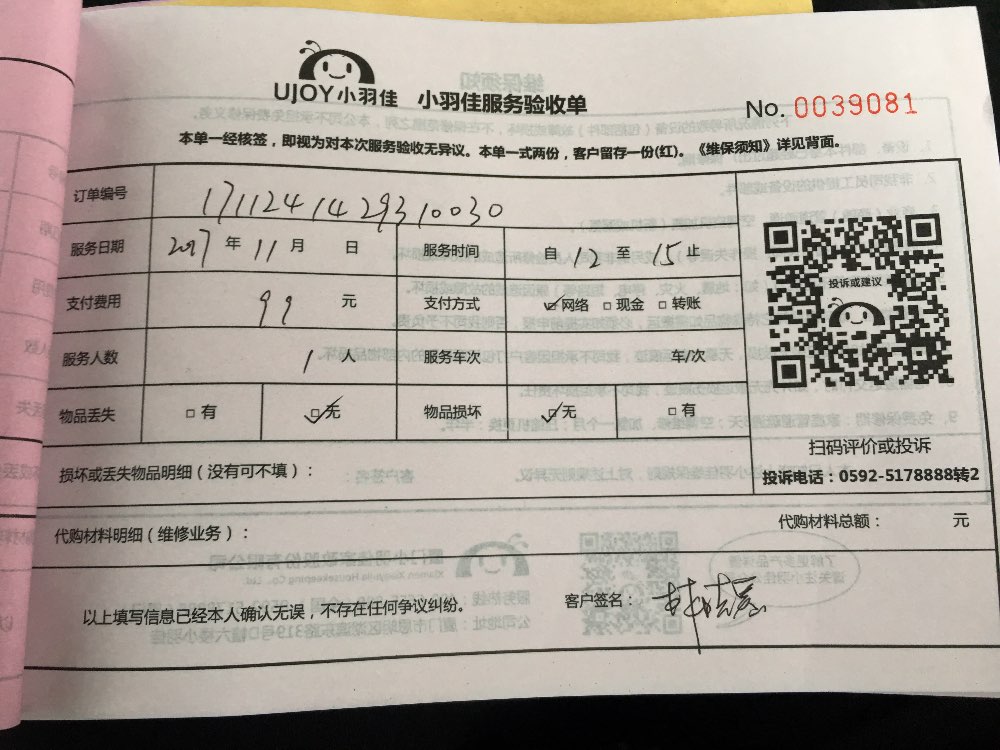 UJOY小羽佳 小羽佳服务验收单 No. 0039081
本单一经核签，即视为对本次服务验收无异议。本单一式两份，客户留存一份(红)。《维保须知》详见背面。
订单编号 1711241429310030
服务日期 2017 年 11 月 日 服务时间 自 12 至 15 止
支付费用 99 元 支付方式 ☑网络 □现金 □转账
服务人数 1 人 服务车次 车/次
物品丢失 □有 ☑无 物品损坏 ☑无 □有
投诉或建议
扫码评价或投诉
投诉电话：0592-5178888转2
损坏或丢失物品明细（没有可不填）：
代购材料明细（维修业务）： 代购材料总额： 元
以上填写信息已经本人确认无误，不存在任何争议纠纷。 客户签名：